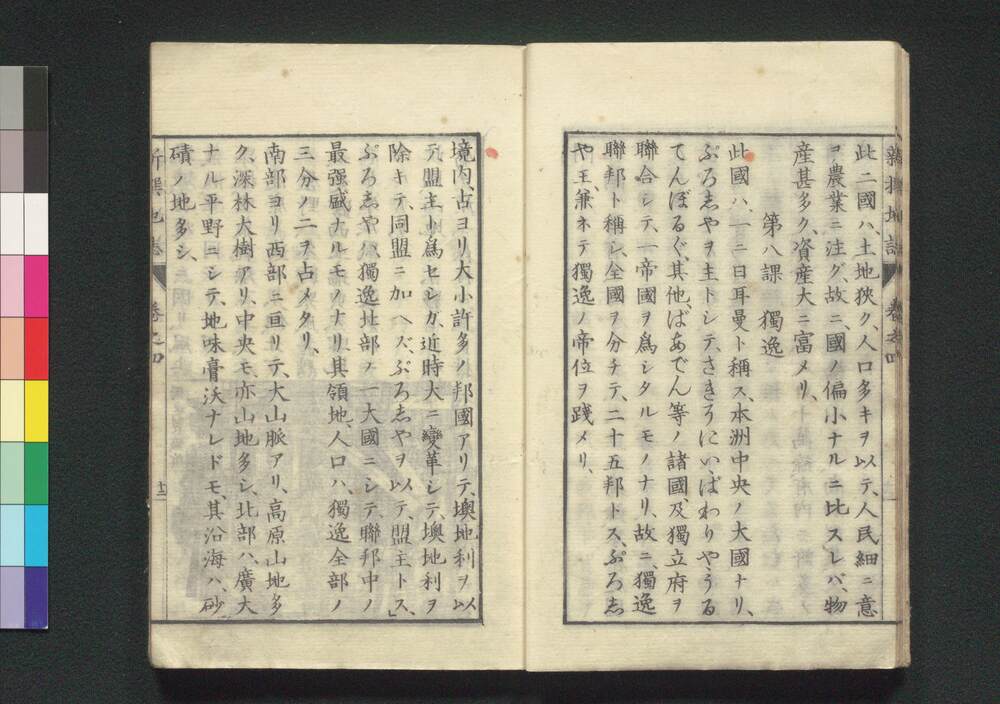 此二國ハ、土地狹ク、人口多キヲ以テ、人民細ニ意
ヲ農業ニ注グ、故ニ、國ノ偏小ナルニ比スレバ、物
産甚多ク、資産大ニ富メリ、
第八課 獨逸
此國ハ、一ニ日耳曼ト稱ス、本洲中央ノ大國ナリ、
ぷろしやヲ主トシテ、さきそにい、ばわりや、うる
てんぼるぐ、其他、ばあでん等ノ諸國、及獨立府ヲ
聯合シテ、一帝國ヲ爲シタルモノナリ、故ニ、獨逸
聯邦ト稱シ、全國ヲ分チテ、二十五邦トス、ぷろし
や王、兼ネテ獨逸ノ帝位ヲ踐メリ、
境内、古ヨリ大小許多ノ邦國アリテ、墺地利ヲ以
テ、盟主ト爲セシガ、近時大ニ變革シテ、墺地利ヲ
除キテ、同盟ニ加ヘズ、ぷろしやヲ以テ、盟主トス、」
ぷろしやハ、獨逸北部ノ一大國ニシテ、聯邦中ノ
最强盛ナルモノナリ、其領地、人口ハ、獨逸全部ノ
三分ノ二ヲ占メタリ、
南部ヨリ西部ニ亘リテ、大山脈アリ、高原山地多
ク、深林大樹アリ、中央モ、亦山地多シ、北部ハ、廣大
ナル平野ニシテ、地味膏沃ナレドモ、其沿海ハ、砂
磧ノ地多シ、
新撰地誌 卷之四 十二